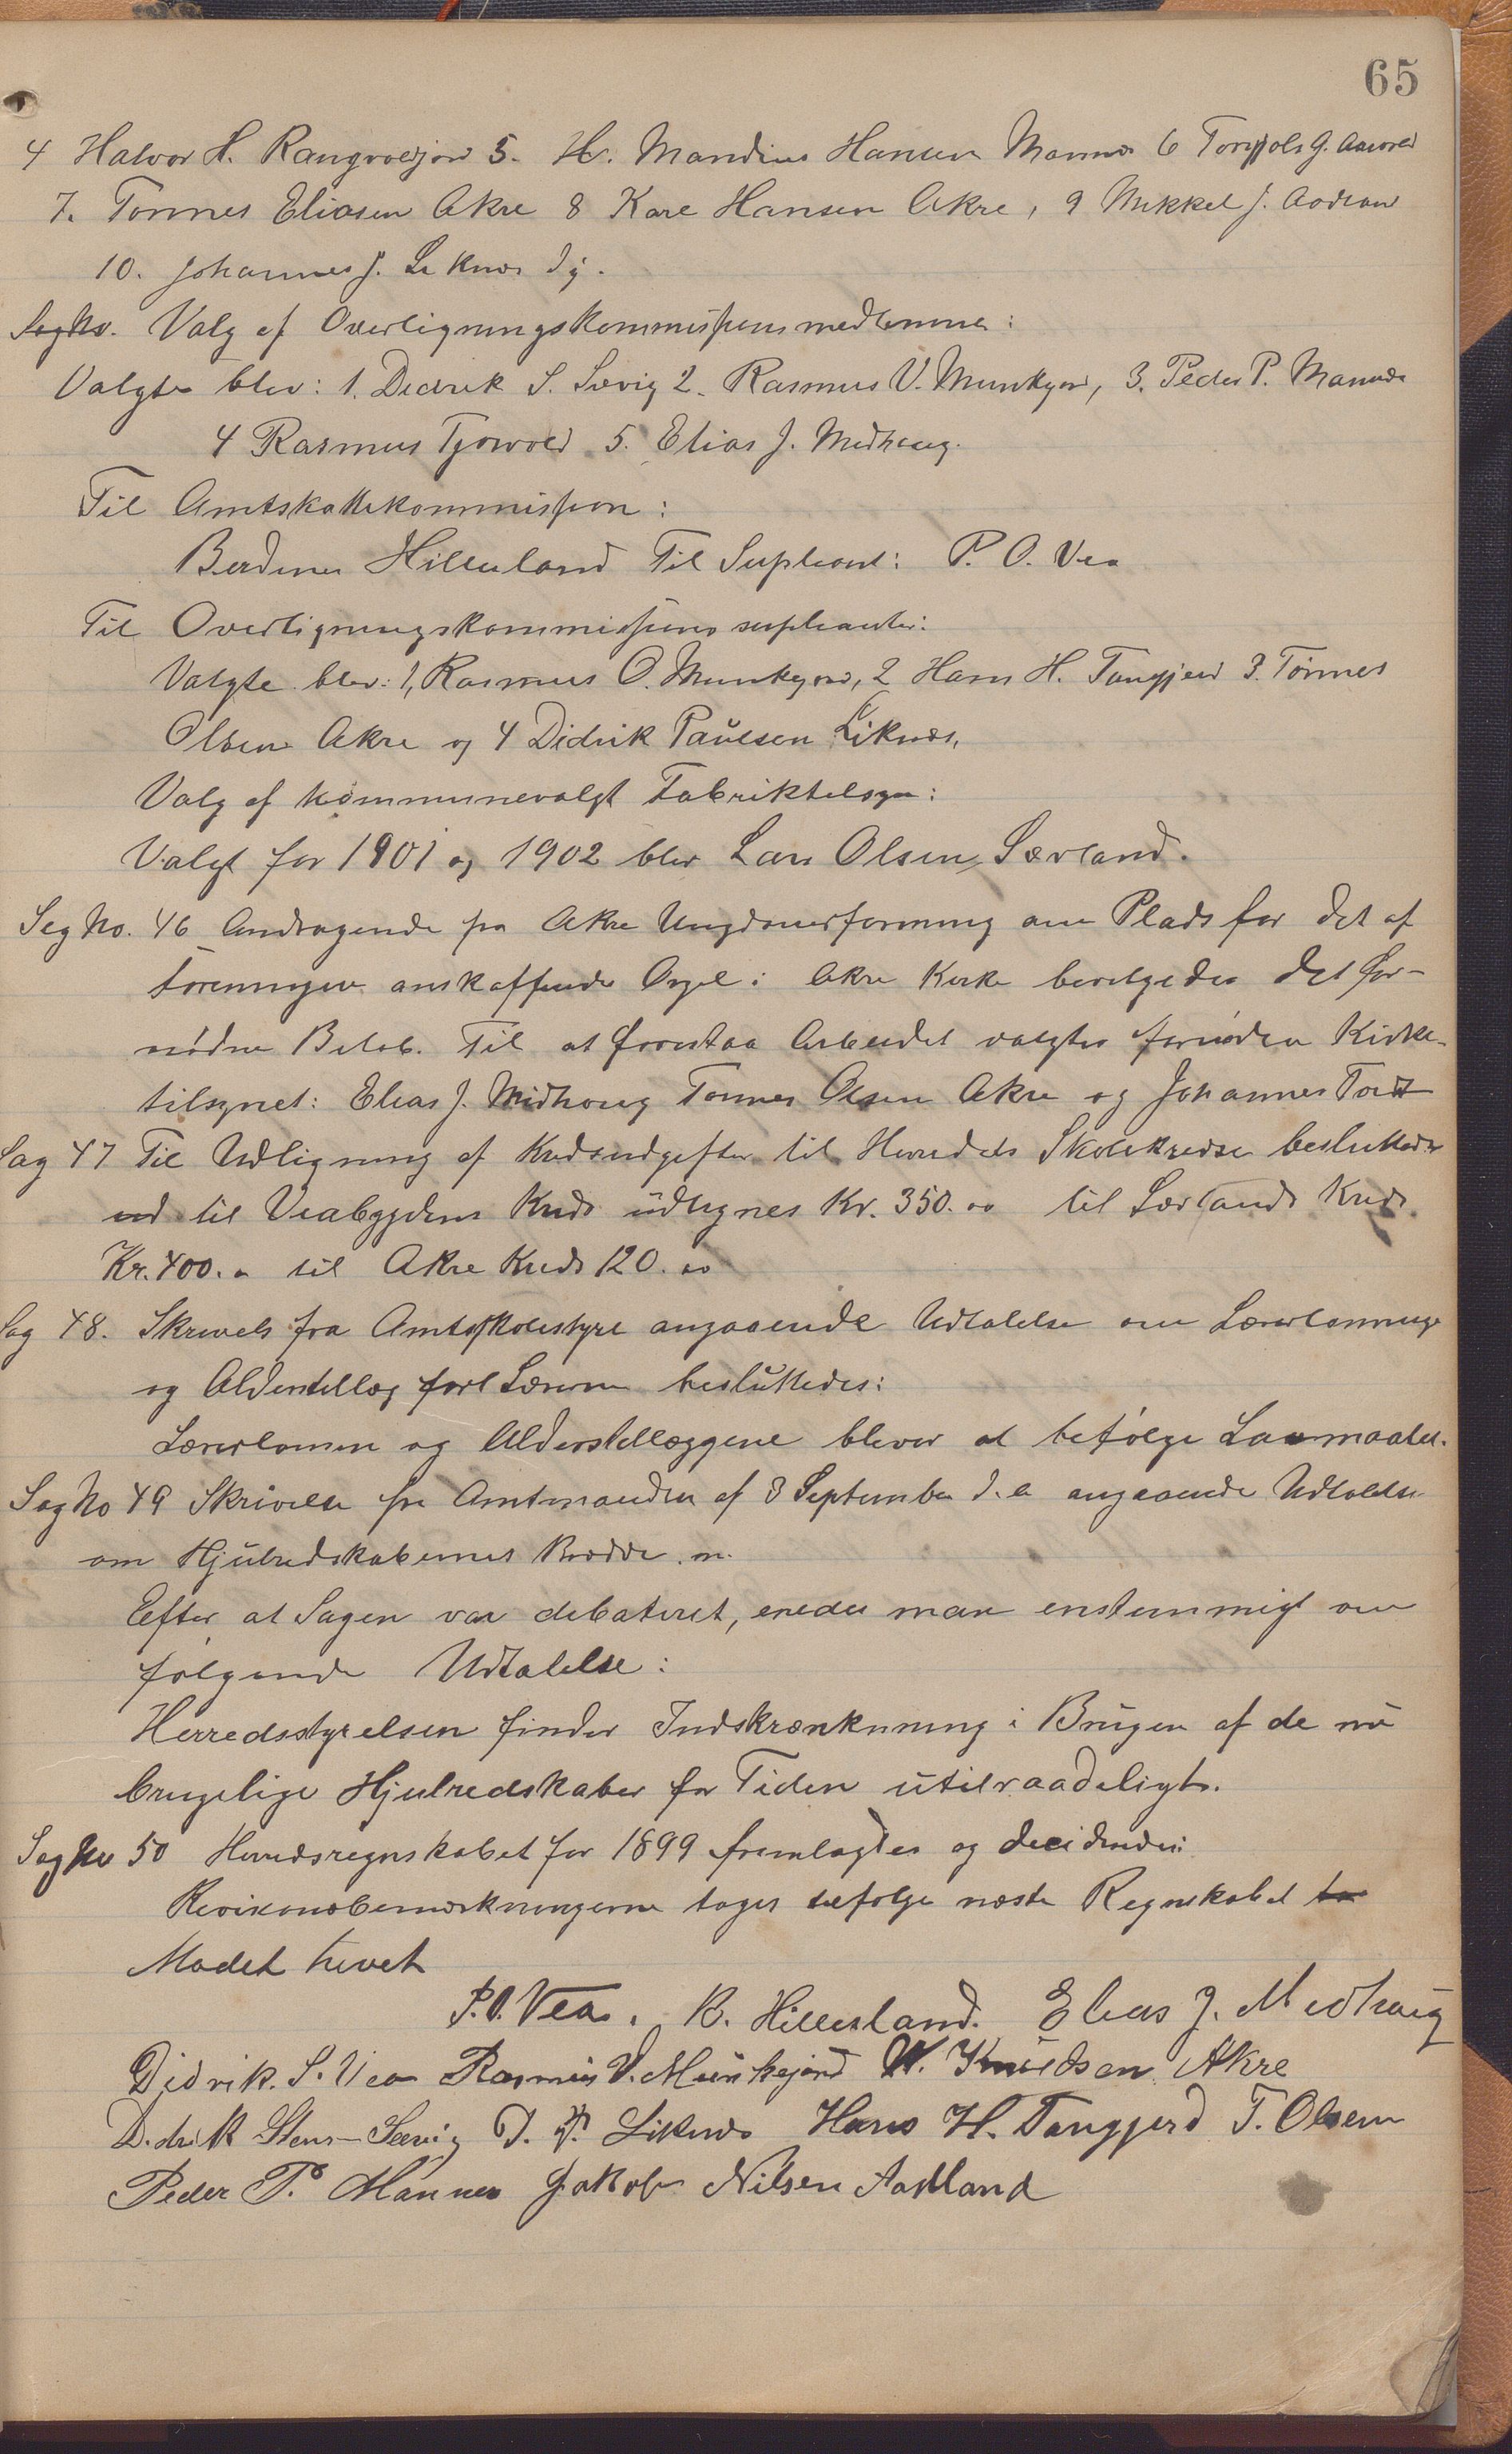 65
4 Halvor H. Rangvoldjor 5. H. Mandius Hansen Mannes 6 Torgjols G.
7. Tonnes Eliasen Akre 8 Kare Hansen Akre, 9 Mikkel J.
10. Johannes J. Liknes
Sag No. Valg af Overligningskommissionsmedlemmer:
Valgte blev: 1. Didrik S. Sævig 2. Rasmus V. Munkejor, 3. Peder P. Mannes
4 Rasmus Tjoswold 5. Elias J. Midhaug.
Til Amtskattekommission:
Berdines Hillesland Til Supleant: P. O. Vea
Til Overligningskommissions supleanter:
Valgte blev: 1, Rasmus O. Munkejor, 2 Hans H. Tangjerd 3. Tønnes
Olsen Akre og 4 Didrik Paulsen Liknes,
Valg af kommunevalgt Fabriktilsyn:
Valgt for 1901 og 1902 blev Lars Olsen Særland.
Sag No. 46 Andragende fra Akre Ungdomsforening om Plads for det af
Foreningen anskaffende Orgel i Akre Kirke bevilgedes det for-
nødne Belob. Til at forestaa Arbeidet valgtes foruden Kirke-
tilsynet: Elias J. Midhoug Tonnes Olsen Akre og Johannes
Sag 47 Til Udligning af Kredsudgifter til Herredets Skolekredse besluttedes
ud til Veabygdens Kreds udlignes Kr. 350.00 til Særlands Kreds
Kr. 400.00 til Akre Kreds 120.00
Sag 48. Skrivels fra Amtsskolestyre angaaende Udtalelse om Lærerlonninge
og Alderstillæg for Lærerne besluttedes:
Lærerlonnen og Alderstillæggene bliver at befølge Lavmaalet.
Sag No 49 Skrivelse fra Amtmanden af 8 September d.a angaaende Udtalelse
om Hjulredskabernes Bredde m.
Efter at Sagen var debateret, enedes man enstemmigt om
følgende Udtalelse:
Herredsstyrelsen finder Indskrænkning i Brugen af de nu
brugelige Hjulredskaber for Tiden utilraadeligt.
Sag No 50 Herredsregnskabet for 1899 fremlagdes og decideredes:
Revisionsbemærkningerne tages tilfolge næste Regnskabet
Modet hevet
P. O. Vea. B. Hillesland. Elias J. Midhaug
Didrik. S. Vea Rasmus V. Munkejord W. Knudsen Akre
Didrik Stens-Sævig D. P. Liknes Hans H. Tangjerd T. Olsen
Peder P. Mannes Jakob Nilsen Aadland